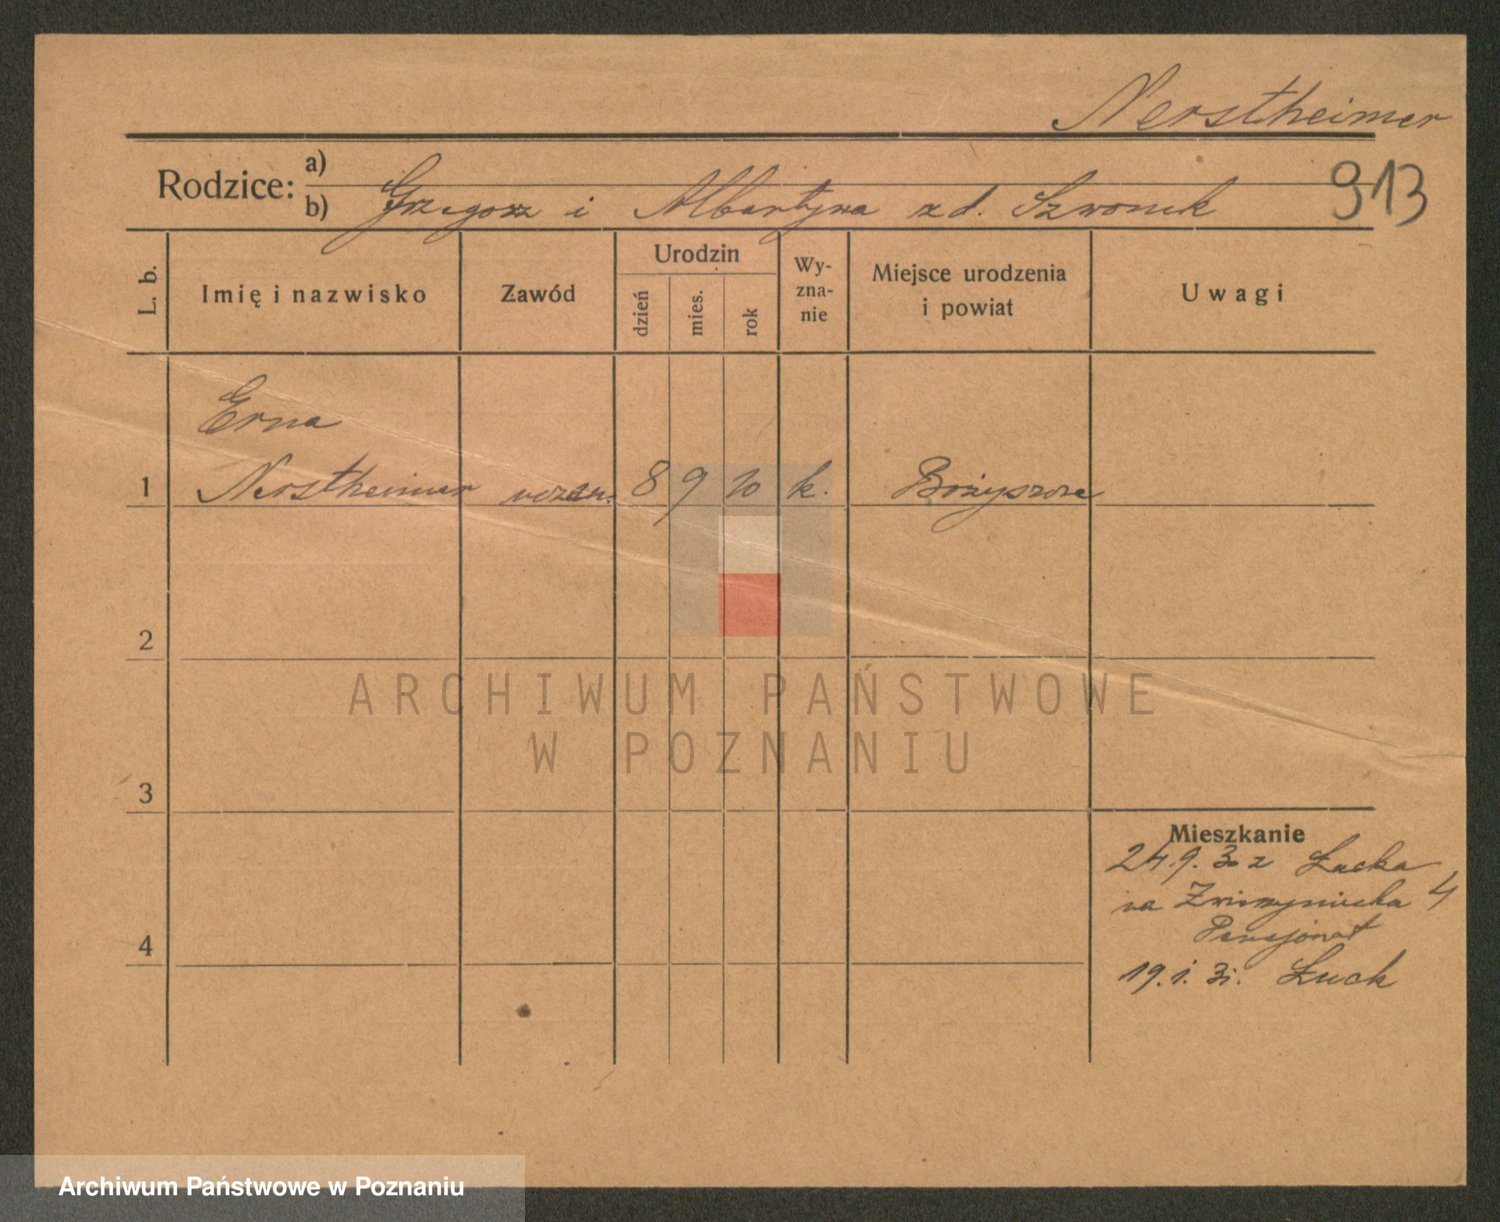 Nerstheimer
Rodzice:
a)
b) Grzegorz i Albertyna z d. Szwonek
913
L. b.
Imię i nazwisko
Zawód
Urodzin
dzień
mies.
rok
Wy-
zna-
nie
Miejsce urodzenia
i powiat
Uwagi
Erna
1 Nerstheimer uczen. 8 9 10 k.
2
3
4
Mieszkanie
24.9.30 z Łucka
na Zwierzyniecka 4
Pensjonat
19.1.31. Łuck
ARCHIWUM PAŃSTWOWE
W POZNANIU
Archiwum Państwowe w Poznaniu